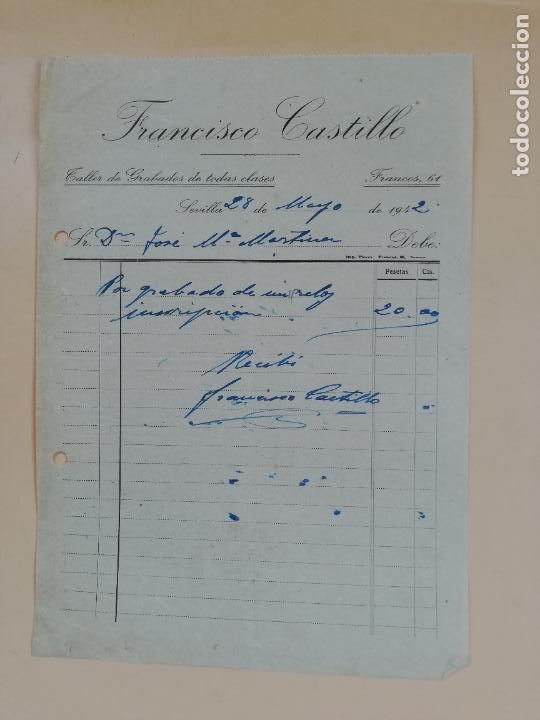 Francisco Castillo
Taller de Grabados de todas clases Francos, 61
Sevilla 28 de Mayo de 1942
Sr. Dn José Mª Martinez Debe:
Pesetas Cts.
Por grabado de un reloj
inscripción 20.00
Recibí
Francisco Castillo
todocoleccion